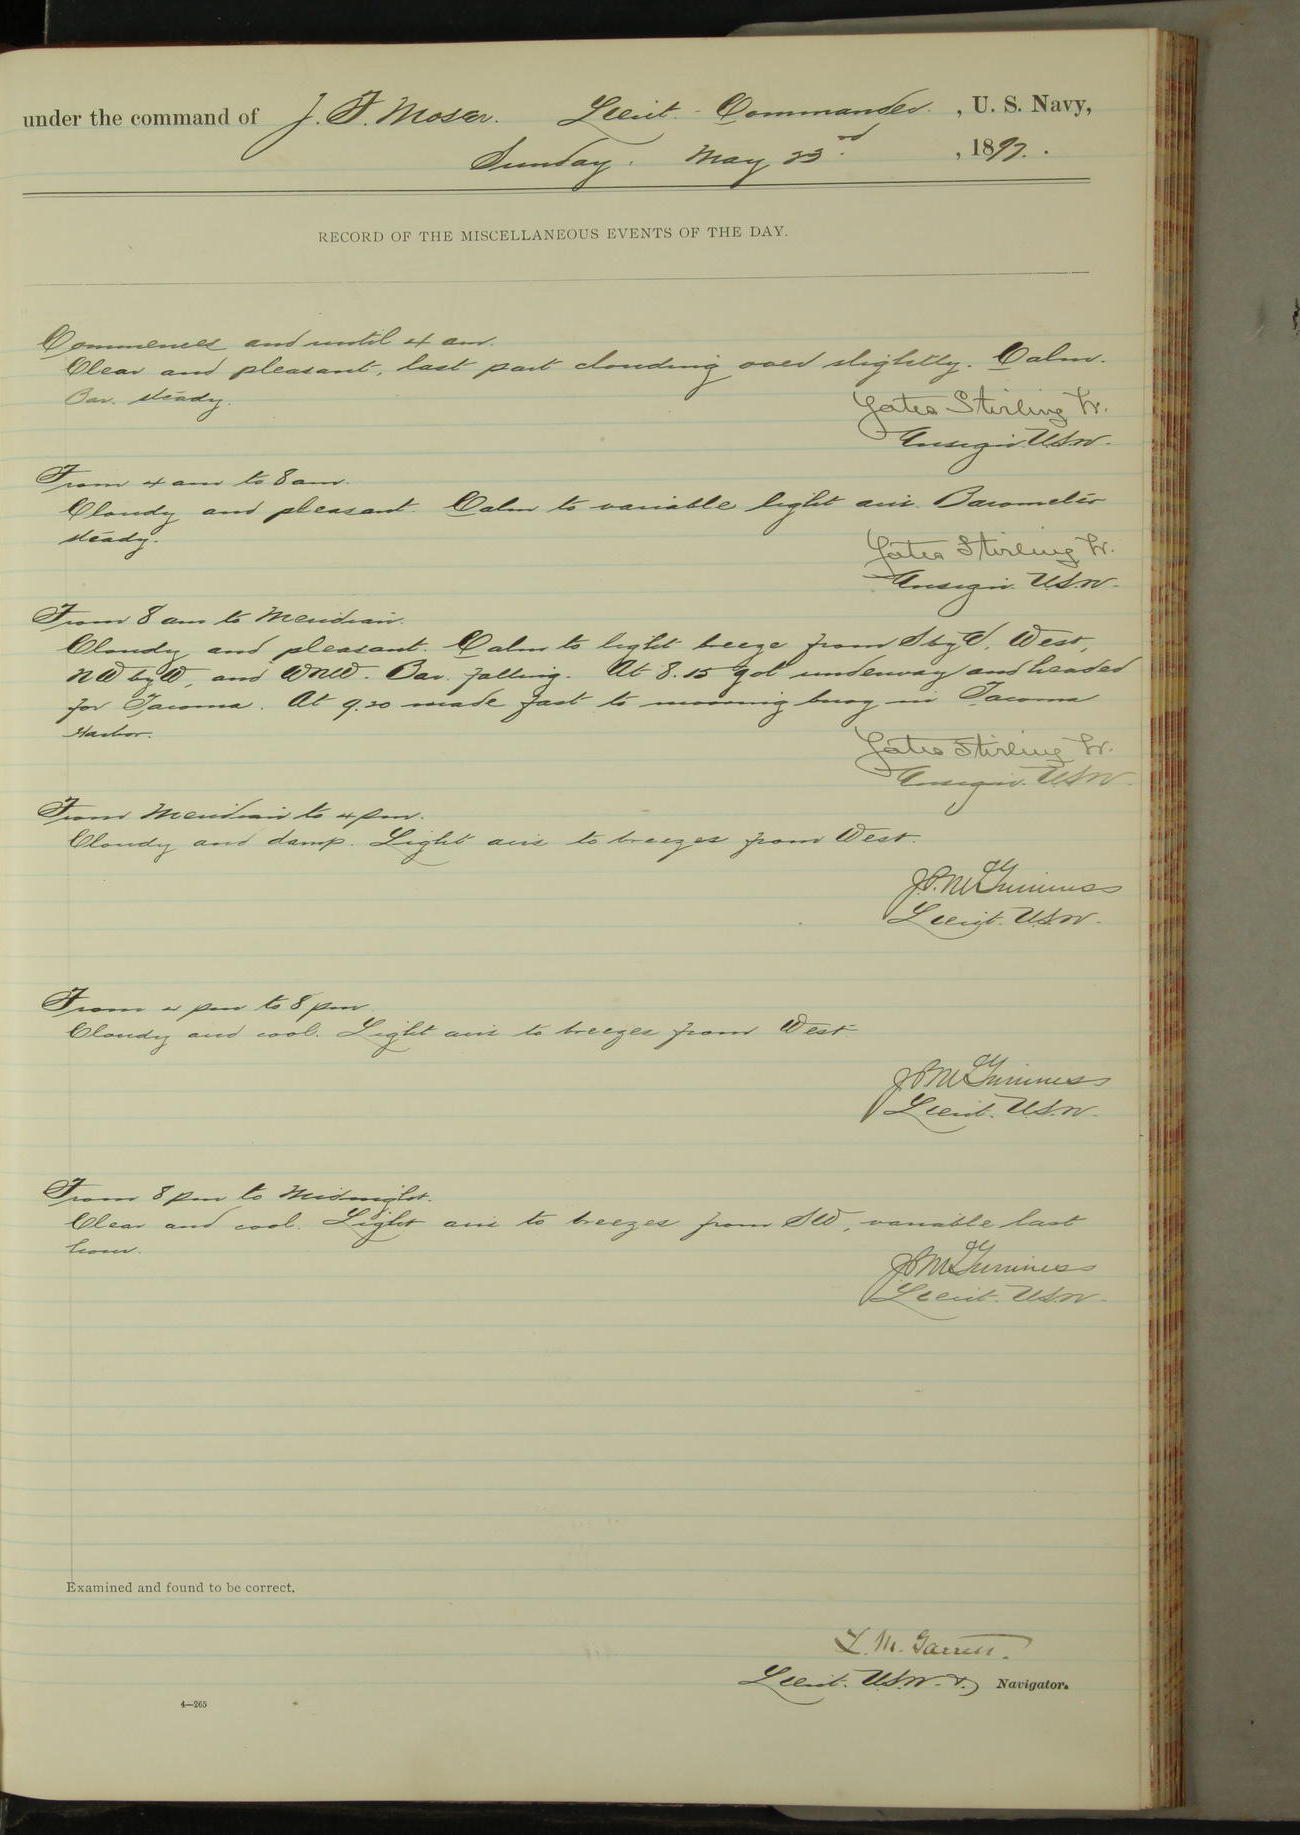 under the command of J. F. Moser. Lieut. - Commander. , U. S. Navy,
Sunday. May 23rd. , 1897.
RECORD OF THE MISCELLANEOUS EVENTS OF THE DAY.
Commences and until 4 am.
Clear and pleasant, last part clouding over slightly. Calm.
Bar. steady.
Yates Stirling Jr.
Ensign U.S.N.
From 4 am to 8 am.
Cloudy and pleasant. Calm to variable light airs. Barometer
steady.
Yates Stirling Jr.
Ensign U.S.N.
From 8 am to Meridian.
Cloudy and pleasant. Calm to light breeze from S by W, West,
NW by W, and WNW. Bar. falling. At 8.15 got underway and headed
for Tacoma. At 9.20 made fast to mooring buoy in Tacoma
Harbor.
Yates Stirling Jr.
Ensign U.S.N.
From Meridian to 4 pm.
Cloudy and damp. Light airs to breezes from West.
J.P. McGuinness
Lieut. U.S.N.
From 4 pm to 8 pm
Cloudy and cool. Light airs to breezes from West.
J.P. McGuinness
Lieut. U.S.N.
From 8 pm to Midnight.
Clear and cool. Light airs to breezes from SW, variable last
hour.
J.P. McGuinness
Lieut. U.S.N.
Examined and found to be correct.
L. M. Garrett.
Lieut. U.S.N. & Navigator.
4—265